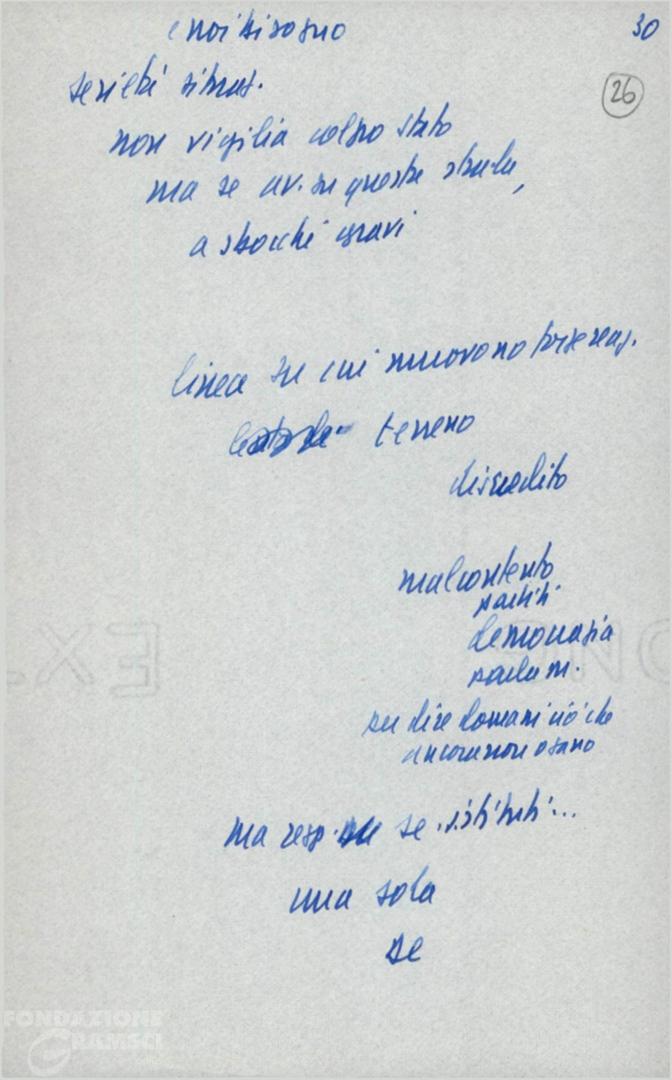 30
26
e noi bisogno
serietà situaz.
non vigilia colpo stato
ma se av. su questa strada,
a sbocchi gravi
linea su cui muovono forze reaz.
terreno
discredito
malcontento
partiti
democrazia
parlam.
per dire domani ciò che
ancora non osano
ma resp. se istituti...
una sola
se
FONDAZIONE
GRAMSCI